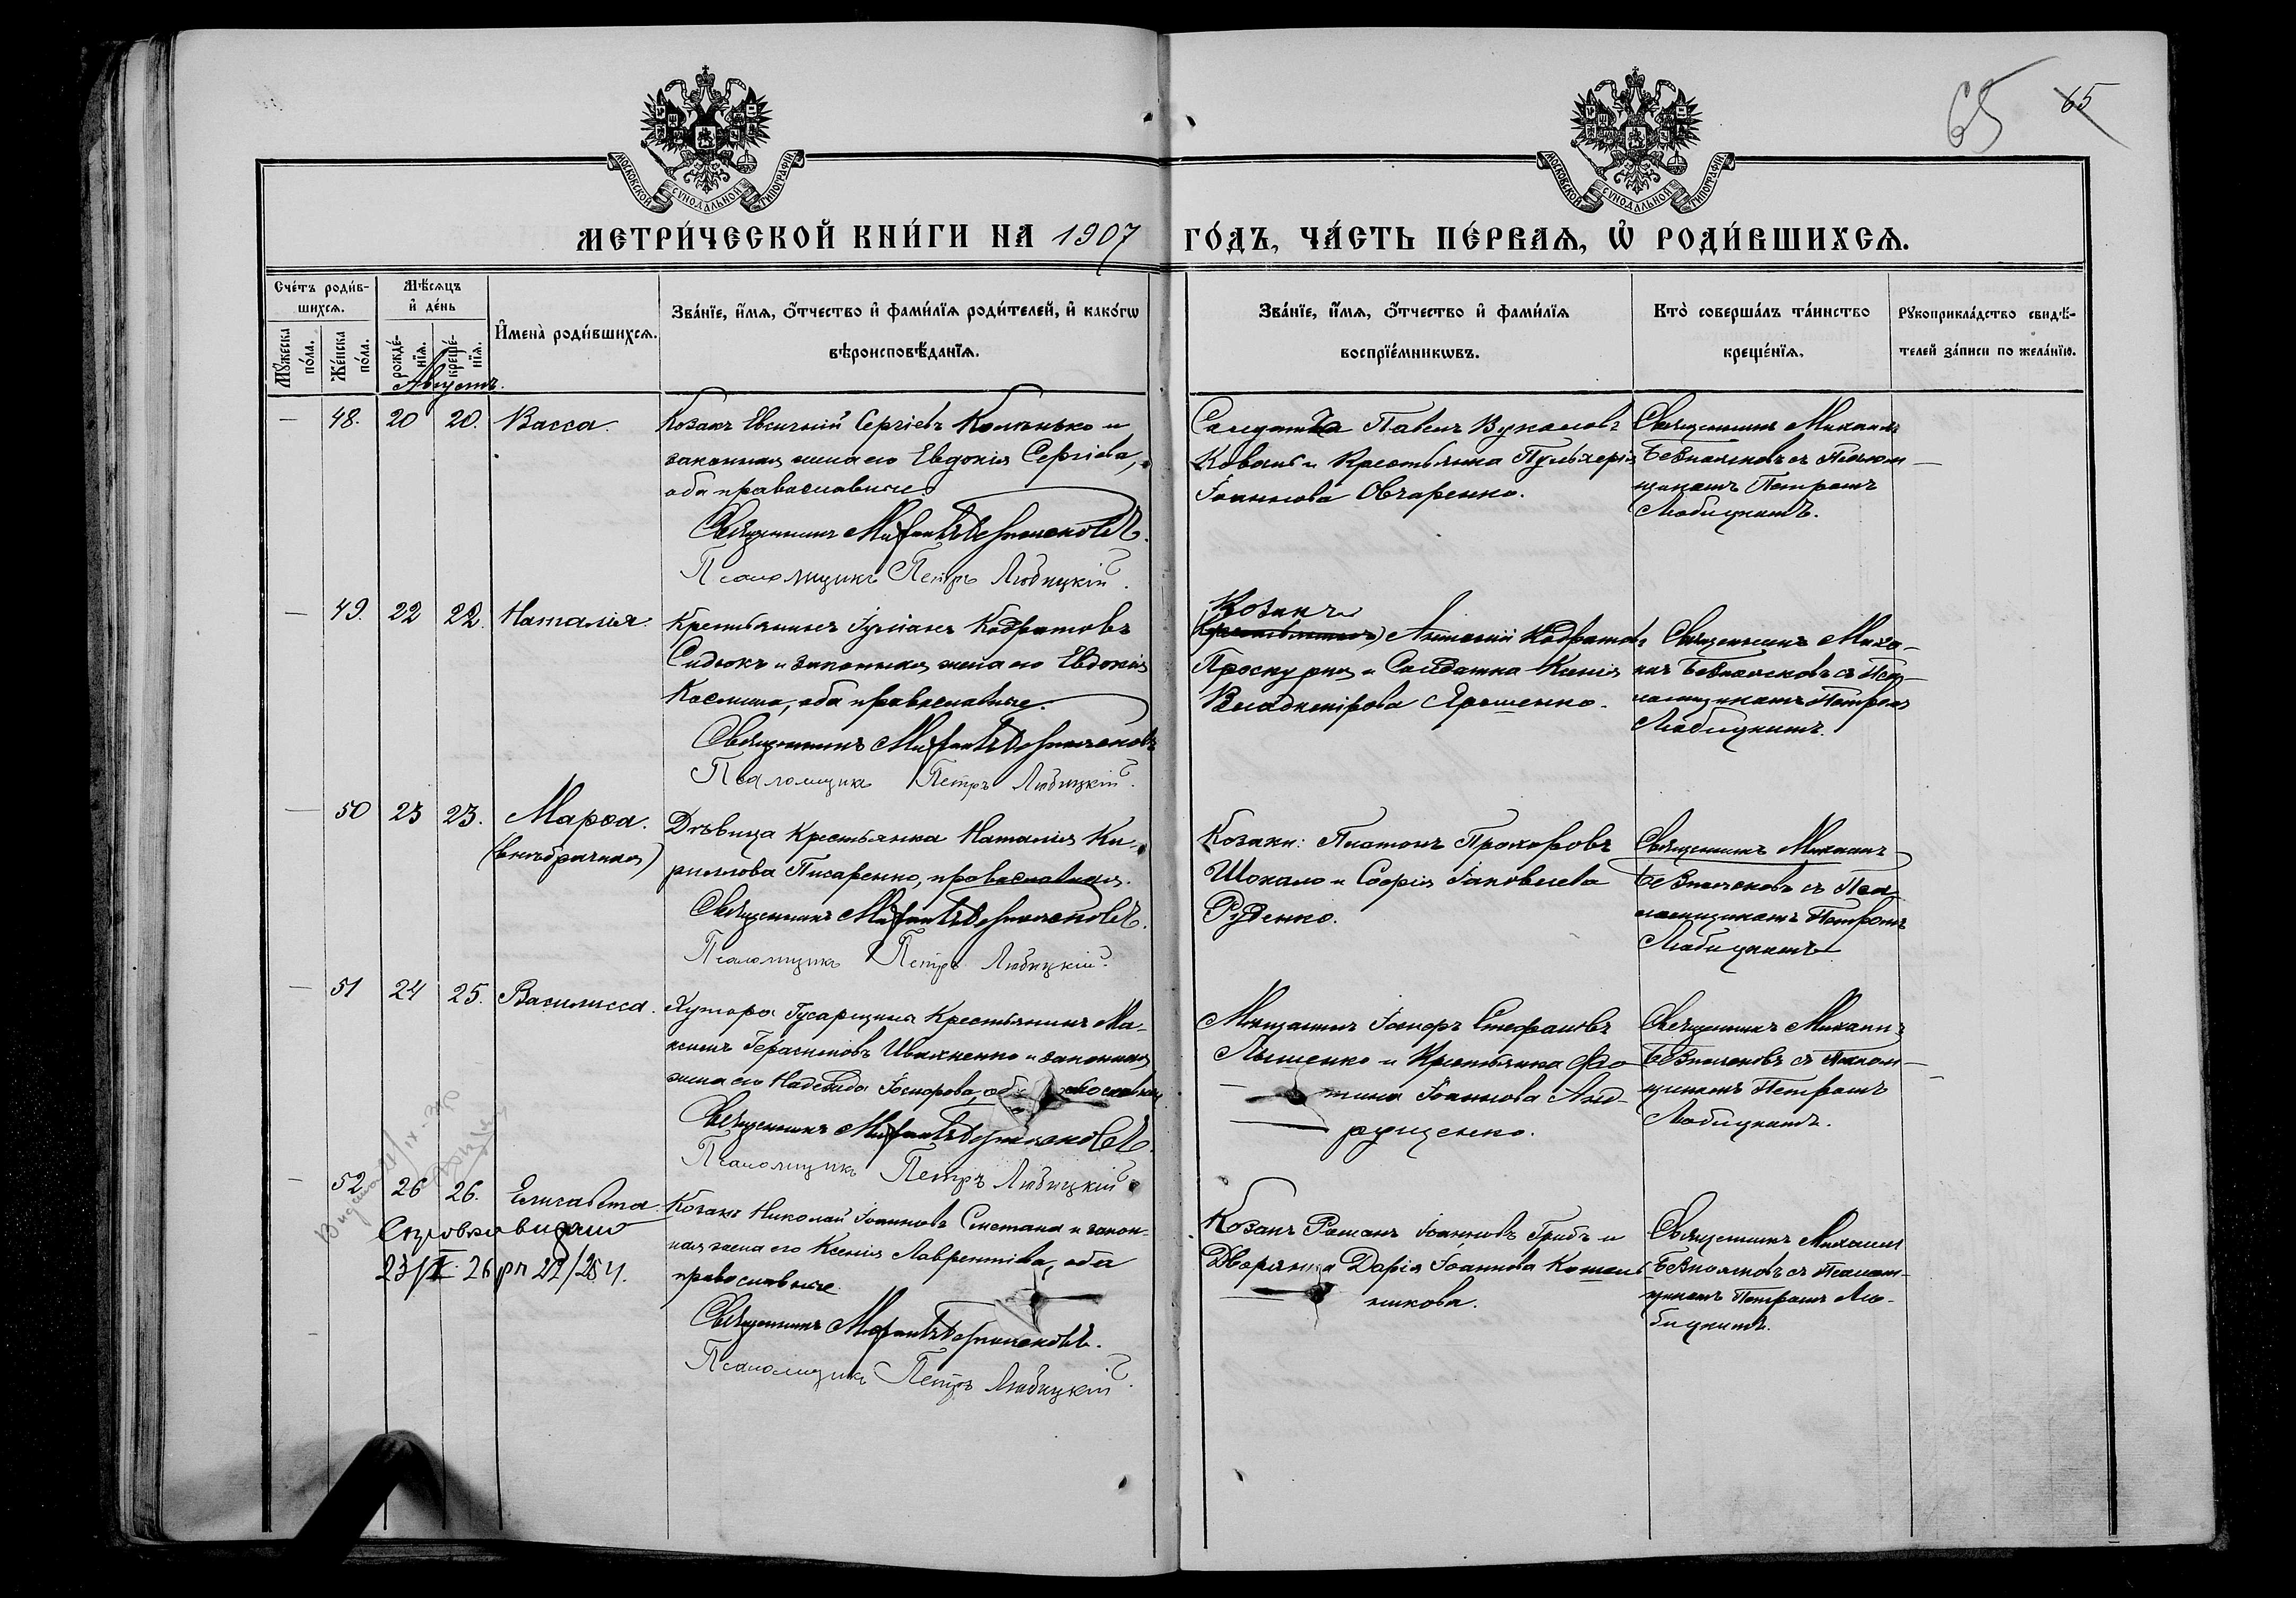 65 65
МОСКОВСКОЙ СУНОДАЛЬНОЙ ТИПОГРАФІИ
МОСКОВСКОЙ СУНОДАЛЬНОЙ ТИПОГРАФІИ
МЕТРИ́ЧЕСКОЙ КНИ́ГИ НА 1907 ГО́ДЪ, ЧА́СТЬ ПЕ́РВАѦ, Ѡ РОДИ́ВШИХСѦ.
Сче́тъ роди́в-
шихсѧ.
Мѣ́сѧцъ
и҆ де́нь
Мꙋ́жеска
по́ла.
Же́нска
по́ла.
рожде́-
нїѧ.
креще́-
нїѧ.
И҆мена̀ роди́вшихсѧ.
Зва́нїе, и҆́мѧ, ѻ҆́тчество и҆ фами́лїѧ роди́телей, и҆ како́гѡ
вѣроисповѣ́данїѧ.
Зва́нїе, и҆́мѧ, ѻ҆́тчество и҆ фами́лїѧ
воспрїе́мникѡвъ.
Кто̀ соверша́лъ та́инство
креще́нїѧ.
Рꙋкоприкла́дство свидѣ́-
телей за́писи по жела́нїю.
Августъ.
— 48. 20 20. Васса.
Козакъ Евсигній Сергіевъ и
законная жена его Евдокія Сергіева,
оба православные.
Священникъ Михаилъ
Псаломщикъ Петръ Любицкій.
Павелъ Вуколовъ
Коваль и Крестьянка Пульхерія
Іоаннова Овчаренко.
Священникъ Михаилъ
съ Псалом-
щикомъ Петромъ
Любицкимъ.
— 49. 22 22. Наталія.
Крестьянинъ Іуліанъ Кодратовъ
Сидюкъ и законная жена его Евдокія
Космина, оба православные.
Священникъ Михаилъ
Псаломщикъ Петръ Любицкій.
Козакъ
(Крестьянинъ) Кодратовъ
Проскурня и Солдатка Ксенія
Владимірова Ярошенко.
Священникъ Миха-
илъ съ Пса-
ломщикомъ Петромъ
Любицкимъ.
— 50 23 23. Марѳа.
(внѣбрачная)
Дѣвица Крестьянка Наталія Ки-
риллова Писаренко, православная.
Священникъ Михаилъ
Псаломщикъ Петръ Любицкій.
Козаки: Платонъ Прохоровъ
Шокало и Софія Іаковлева
Руденко.
Священникъ Михаилъ
съ Пса-
ломщикомъ Петромъ
Любицкимъ
— 51 24 25. Василисса.
Хутора Гусарщина Крестьянинъ Ма-
ксимъ Герасимовъ Ивахненко и законная
жена его Надежда Іосифова,
Священникъ Михаилъ
Псаломщикъ Петръ Любицкій
Мѣщанинъ Іосифъ Стефановъ
Лышенко и Крестьянка Фо-
тина Іоаннова Анд-
рущенко.
Священникъ Михаилъ
съ Псалом-
щикомъ Петромъ
Любицкимъ.
— 52 26 26. Елисавета.
Козакъ Николай Іоанновъ Сметана и закон-
ная жена его Ксенія Лаврентіева, оба
православные.
Священникъ Михаилъ
Псаломщикъ Петръ Любицкій.
Козакъ Романъ Іоанновъ Грибъ и
Дворянка Дарія Іоаннова Котель-
никова.
Священникъ Михаилъ
съ Псалом-
щикомъ Петромъ Лю-
бицкимъ.